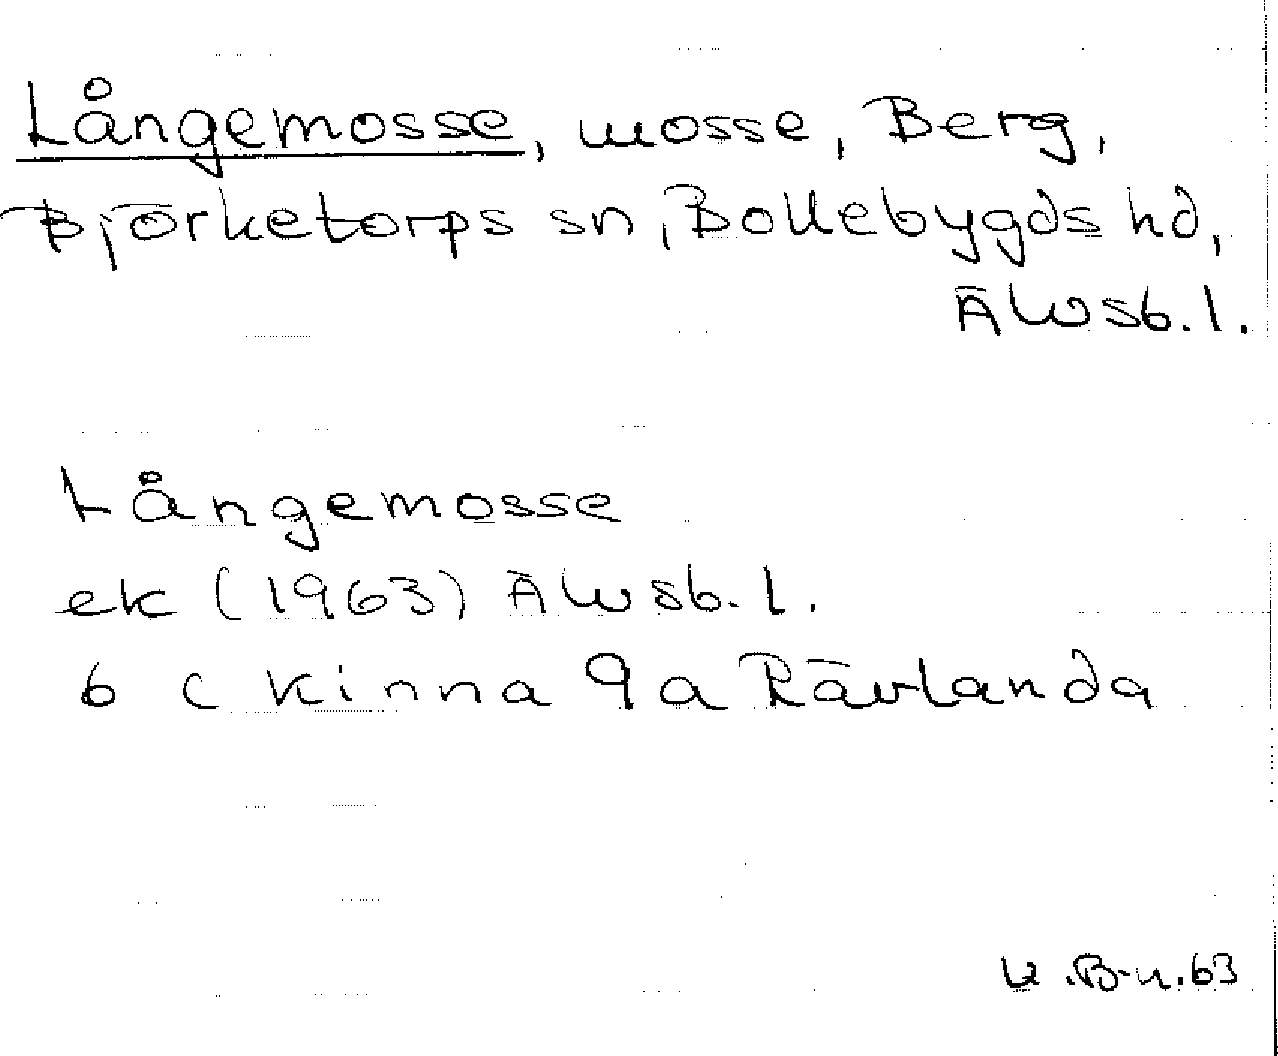 Långemosse, mosse, Berg,
Björketorps sn, Bollebygds hd,
Älvsb. l.
Långemosse
ek (1963) Älvsb. l.
6 C Kinna 9a Rävlanda
K. B-n. 63